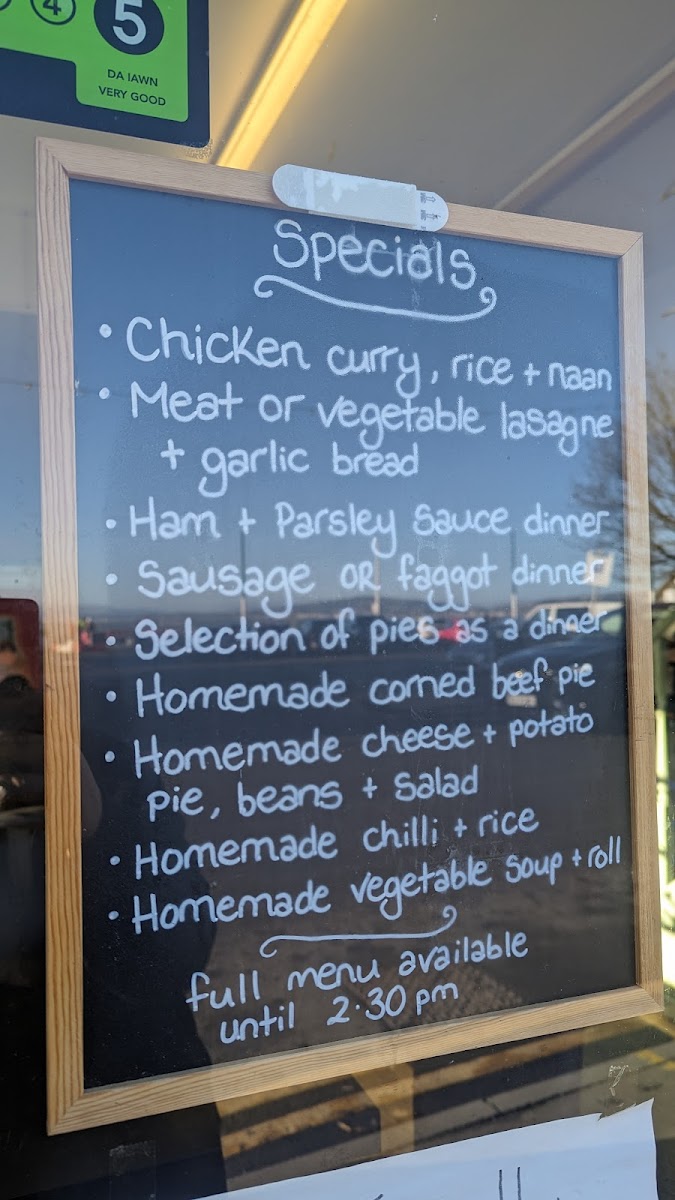 4 5
DA IAWN
VERY GOOD
Specials
• Chicken curry, rice + naan
• Meat or vegetable lasagne
+ garlic bread
• Ham + Parsley Sauce dinner
• Sausage OR faggot dinner
• Selection of pies as a dinner
• Homemade corned beef pie
• Homemade cheese + potato
pie, beans + salad
• Homemade chilli + rice
• Homemade vegetable soup + roll
full menu available
until 2.30pm